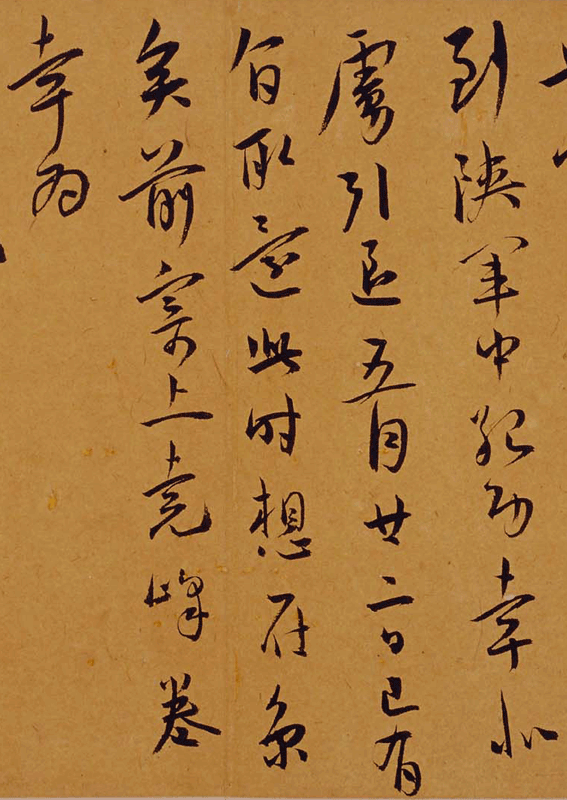 到陜軍中紀功幸北
虜引退五月廿二日已有
旨取還此時想在京
矣前寄上堯峰卷
幸為